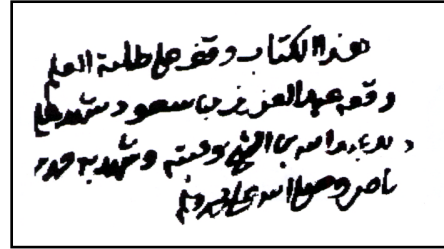 هذا الكتاب وقف على طلبة العلم
وقفه عبدالعزيز بن سعود شهد على
ذلك عبدالله بن الشيخ وكتبه وشهد به
ناصر وصلى الله على محمد